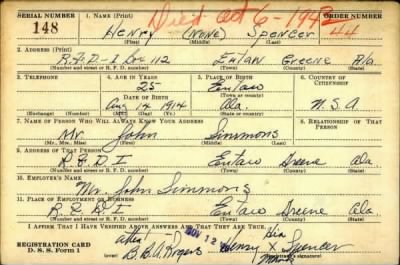 SERIAL NUMBER 1. NAME (Print) ORDER NUMBER
Died Oct 6-1942
148 HENRY (NONE) SPENCER 44
(First) (Middle) (Last)
2. ADDRESS (Print)
R.F.D-1 Box 112 Eutaw Greene Ala.
(Number and street or R. F. D. number) (Town) (County) (State)
3. TELEPHONE 4. AGE IN YEARS 5. PLACE OF BIRTH 6. COUNTRY OF CITIZENSHIP
25 Eutaw
DATE OF BIRTH (Town or county)
Aug 14 1914 Ala. U.S.A
(Exchange) (Number) (Mo.) (Day) (Yr.) (State or country)
7. NAME OF PERSON WHO WILL ALWAYS KNOW YOUR ADDRESS 8. RELATIONSHIP OF THAT PERSON
Mr. John Simmons
(Mr., Mrs., Miss) (First) (Middle) (Last)
9. ADDRESS OF THAT PERSON
R.F.D I Eutaw Greene Ala
(Number and street or R. F. D. number) (Town) (County) (State)
10. EMPLOYER'S NAME
Mr. John Simmons
11. PLACE OF EMPLOYMENT OR BUSINESS
R.F.D I Eutaw Greene Ala
(Number and street or R. F. D. number) (Town) (County) (State)
I AFFIRM THAT I HAVE VERIFIED ABOVE ANSWERS AND THAT THEY ARE TRUE.
REGISTRATION CARD
D. S. S. Form 1
NOV 12 his
B.B.A. Rogers Henry X Spencer
mark